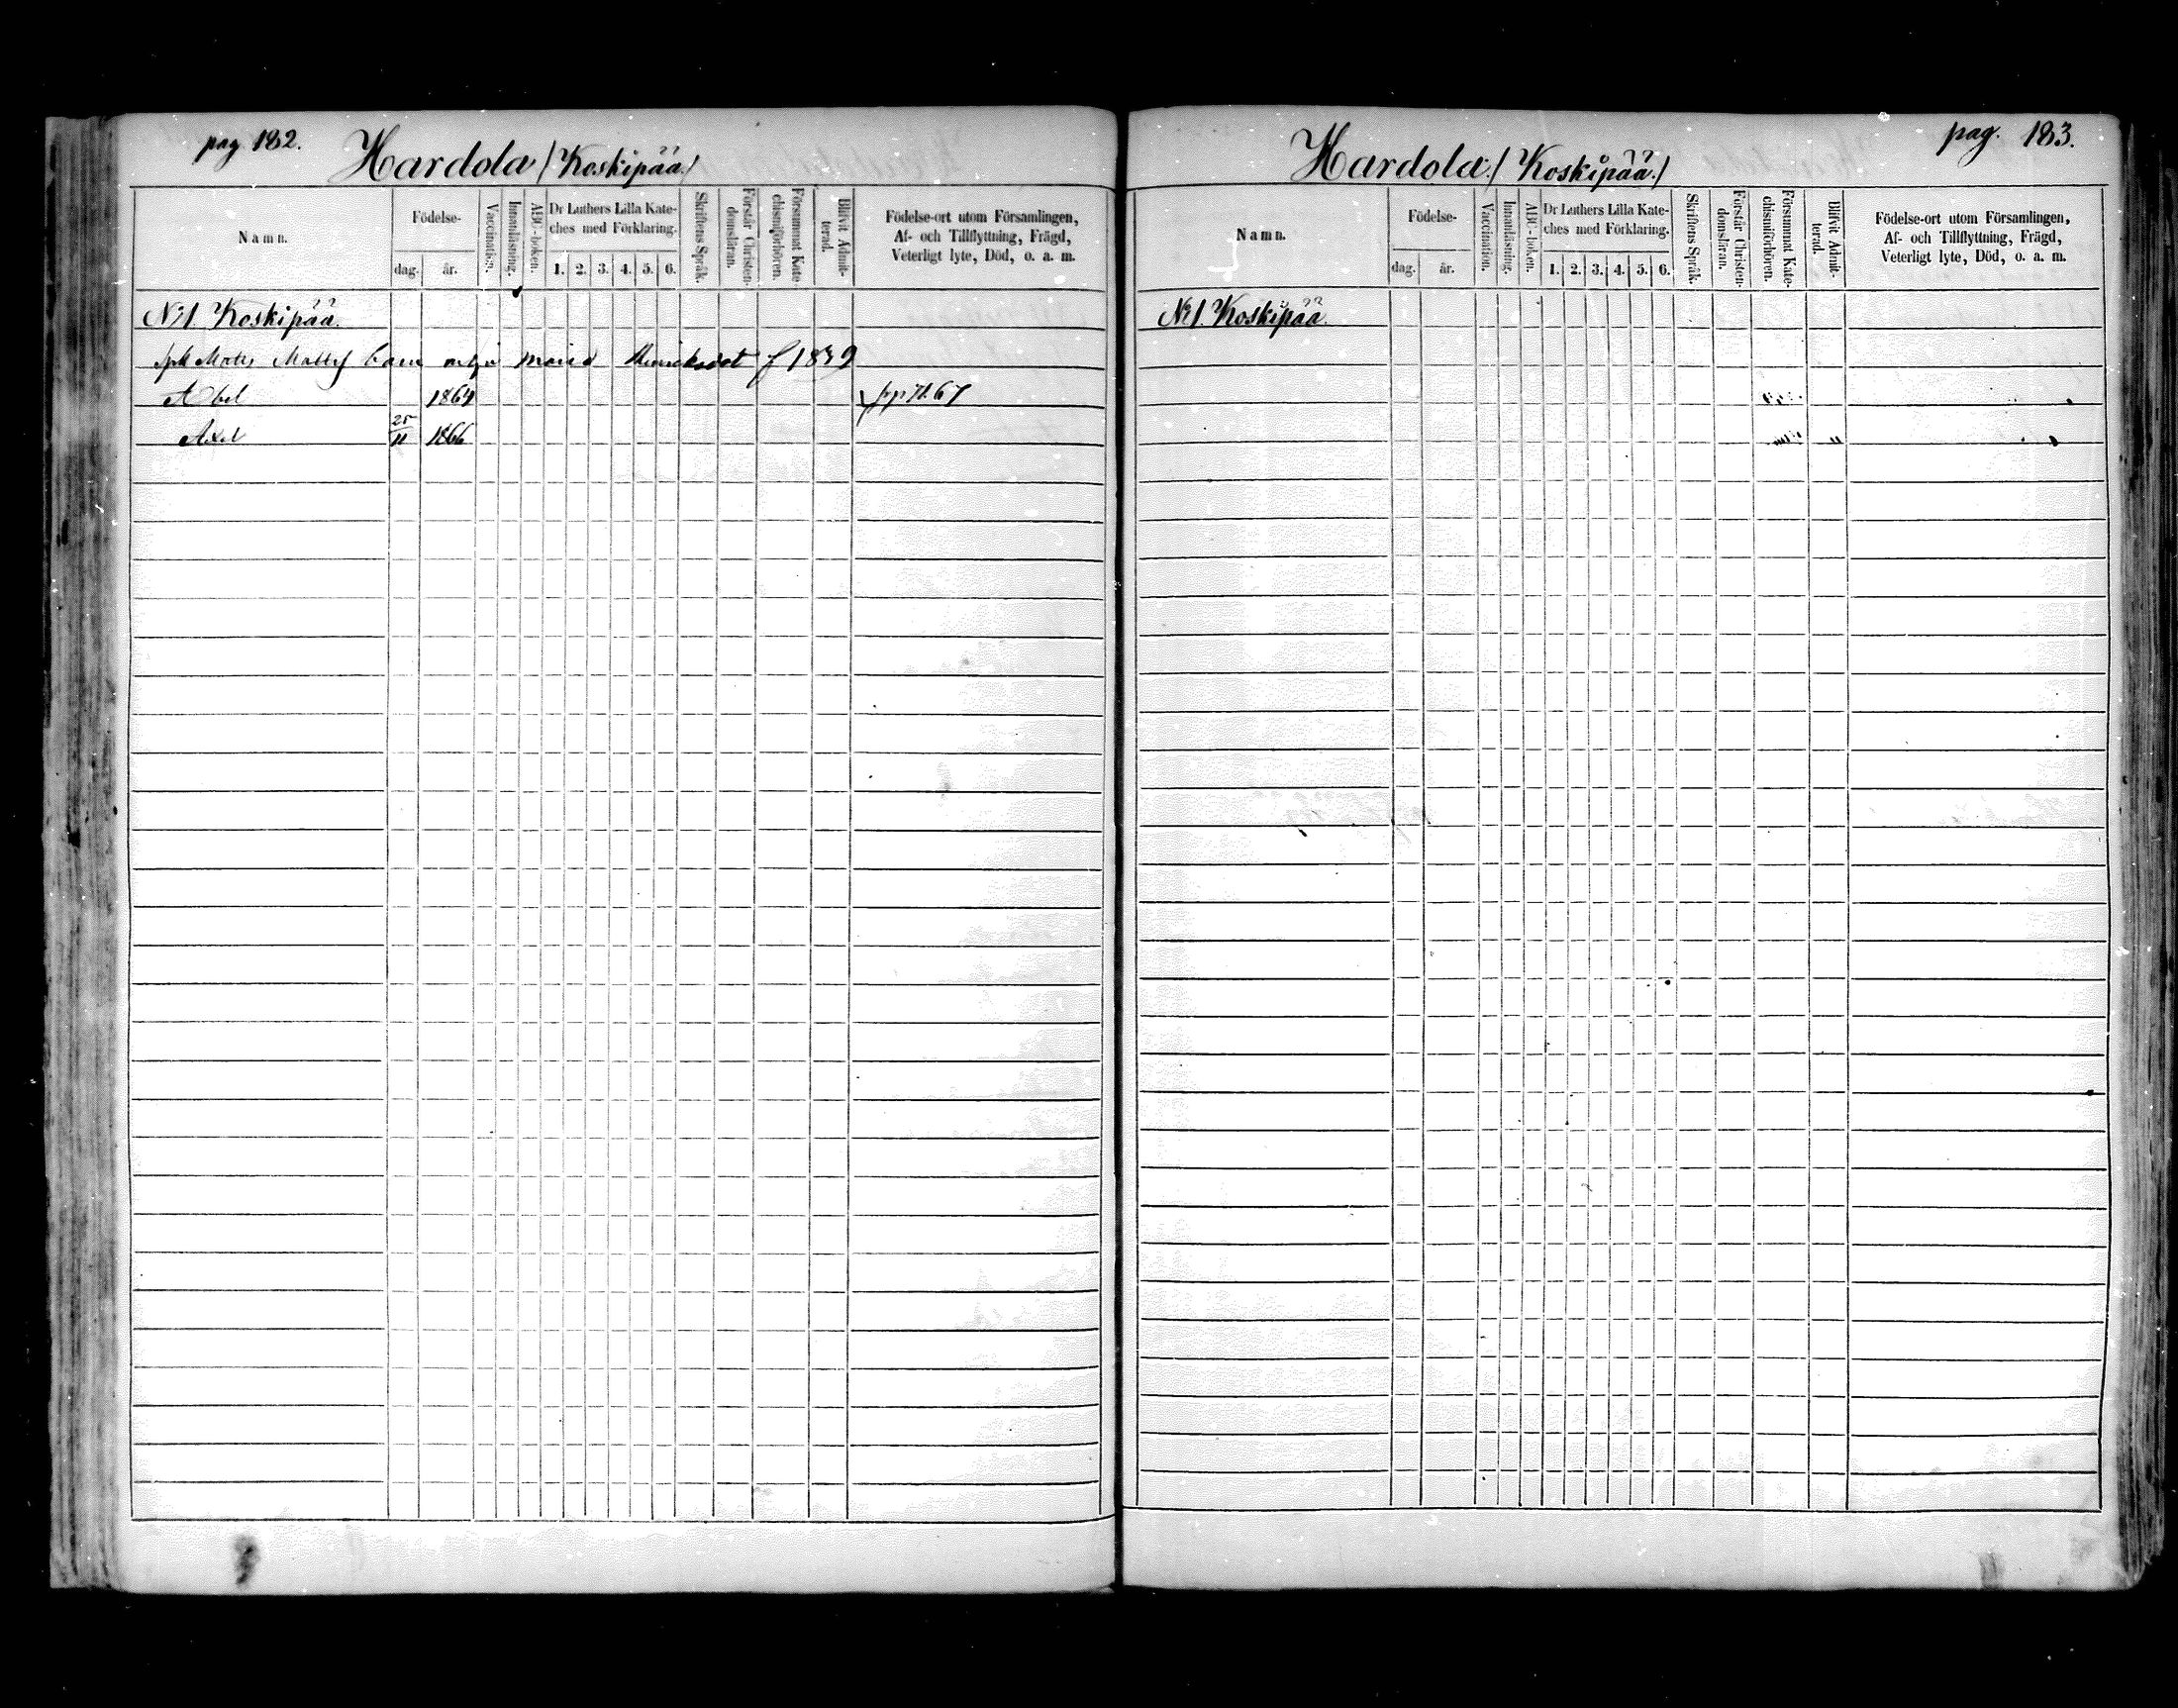 pag. 182.
Hardola /Koskipää/
Namn.
Födelse-
dag. år.
Vaccination.
Innanläsning.
ABC-boken.
Dr Luthers Lilla Kate-
ches med Förklaring.
1. 2. 3. 4. 5. 6.
Skriftens Språk.
Förstår Christen-
domsläran.
Försummat Kate-
chismiförhören.
Blifvit Admit-
terad.
Födelse-ort utom Församlingen,
Af- och Tillflyttning, Frägd,
Veterligt lyte, Död, o. a. m.
No 1. Koskipää.
Matts Matts barn Maria Henricksdot f 1839
Abel 1864
Axel 25/11 1866
pag. 183.
Hardola. /Koskipää./
Namn.
Födelse-
dag. år.
Vaccination.
Innanläsning.
ABC-boken.
Dr Luthers Lilla Kate-
ches med Förklaring.
1. 2. 3. 4. 5. 6.
Skriftens Språk.
Förstår Christen-
domsläran.
Försummat Kate-
chismiförhören.
Blifvit Admit-
terad.
Födelse-ort utom Församlingen,
Af- och Tillflyttning, Frägd,
Veterligt lyte, Död, o. a. m.
No 1. Koskipää.